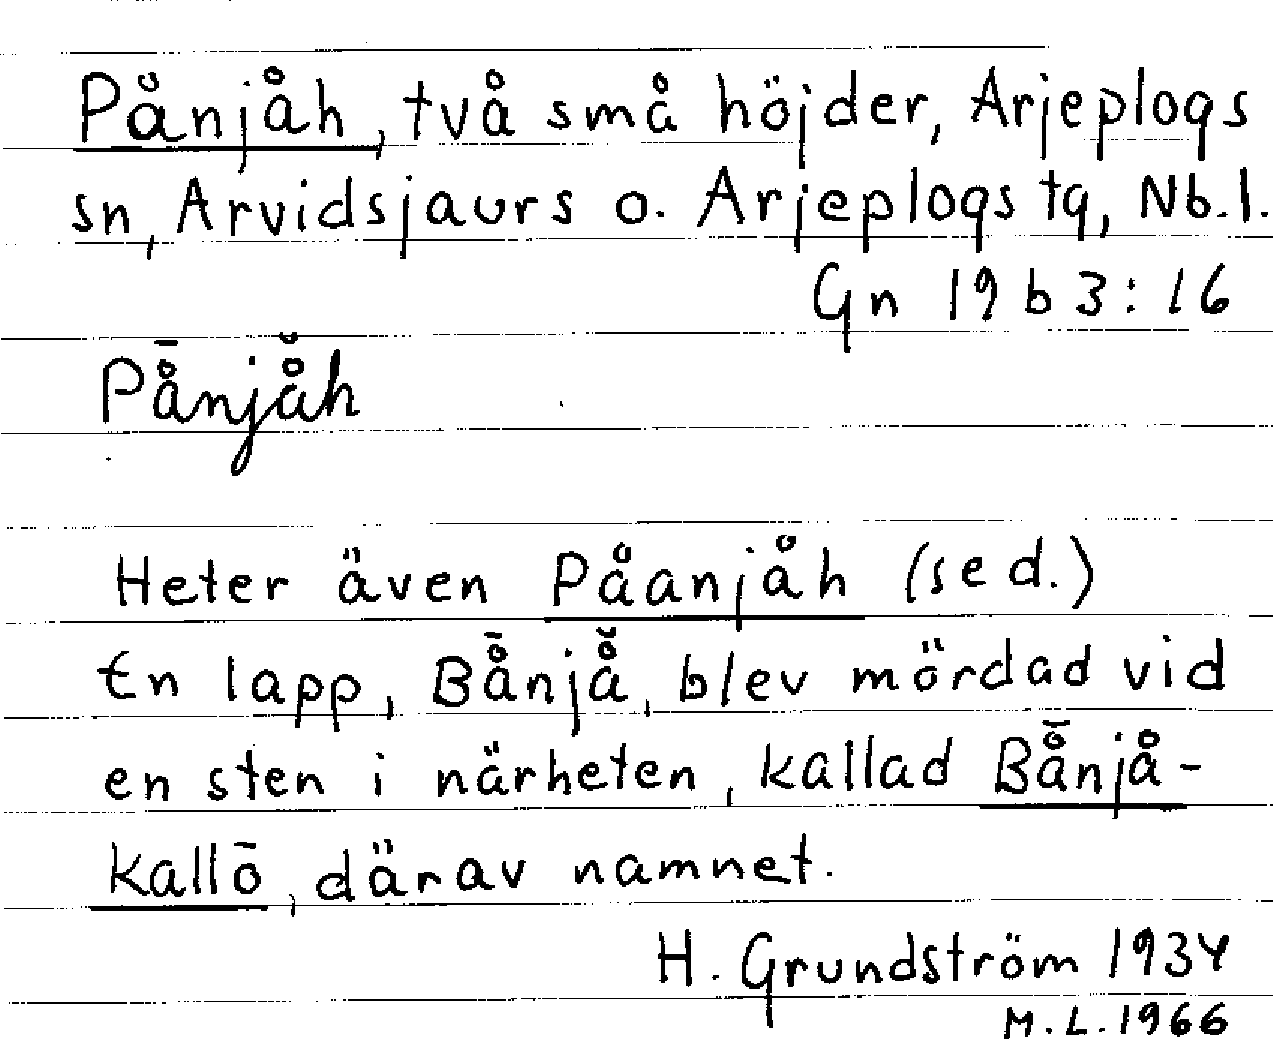 Pånjåh, två små höjder, Arjeplogs
sn, Arvidsjaurs o. Arjeplogs tg, Nb.l.
Gn 19 b 3:16
På̄njå̆h
Heter även Påanjåh (se d.)
En lapp, Bå̄njå̆, blev mördad vid
en sten i närheten, kallad Bå̄njå-
kallō, därav namnet.
H. Grundström 1934
M.L. 1966